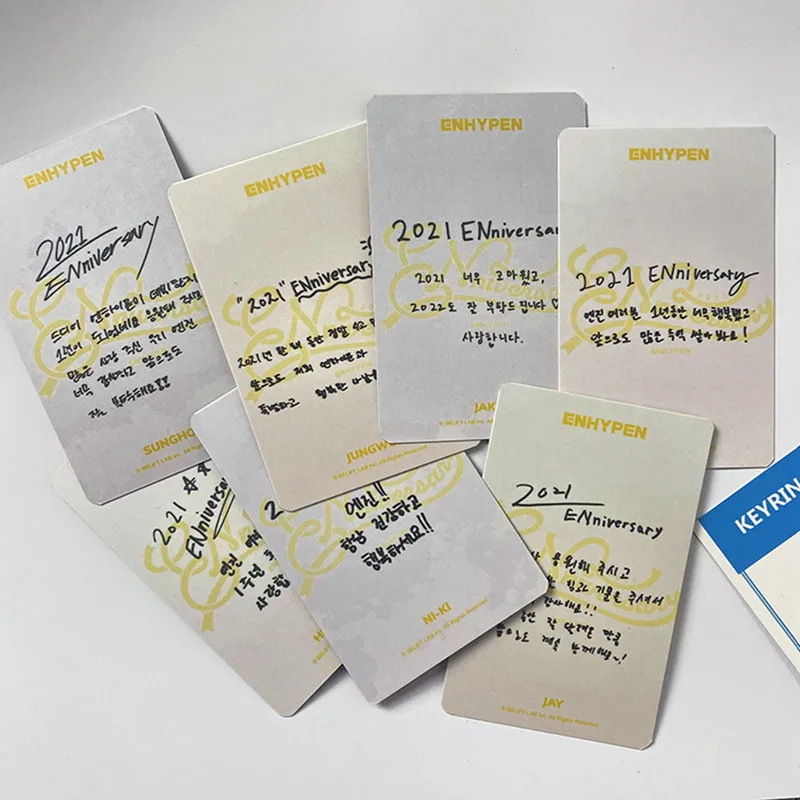 ENHYPEN
2021
ENniversary
드디어 엔하이픈이 데뷔한지
1년이 되었네요 응원해 주시고
많은 사랑 주신 우리 엔진
너무 감사하고 앞으로도
잘 부탁해요!!
SUNGHO
© BELIFT LAB Inc. All Rights Reserved.
ENHYPEN
"2021" ENniversary
2021년 한 해 동안 정말 수고
앞으로도 저희 엔하이픈과
특별하고 행복한 나날
JUNGW
© BELIFT LAB Inc. All Rights Reserved.
ENHYPEN
2021 ENniversa
2021 너무 고마웠고,
2022도 잘 부탁드립니다 ♡
사랑합니다.
JAK
© BELIFT LAB Inc. All Rights
ENHYPEN
2021 ENniversary
엔진 여러분 1년동안 너무 행복했고
앞으로도 많은 추억 쌓아 봐요!
2021 ☆☆
ENniversary
엔진
1주년
사랑합
H
© BELIFT
2
엔진!!
항상 건강하고
행복하세요!!
NI-KI
© BELIFT LAB Inc. All Rights Reserved.
ENHYPEN
2021
ENniversary
응원해 주시고
힘과 기쁨을 주셔서
감사해요!!
잘 만큼
계속 함께해~!
JAY
© BELIFT LAB Inc. All Rights Reserved.
KEYRIN